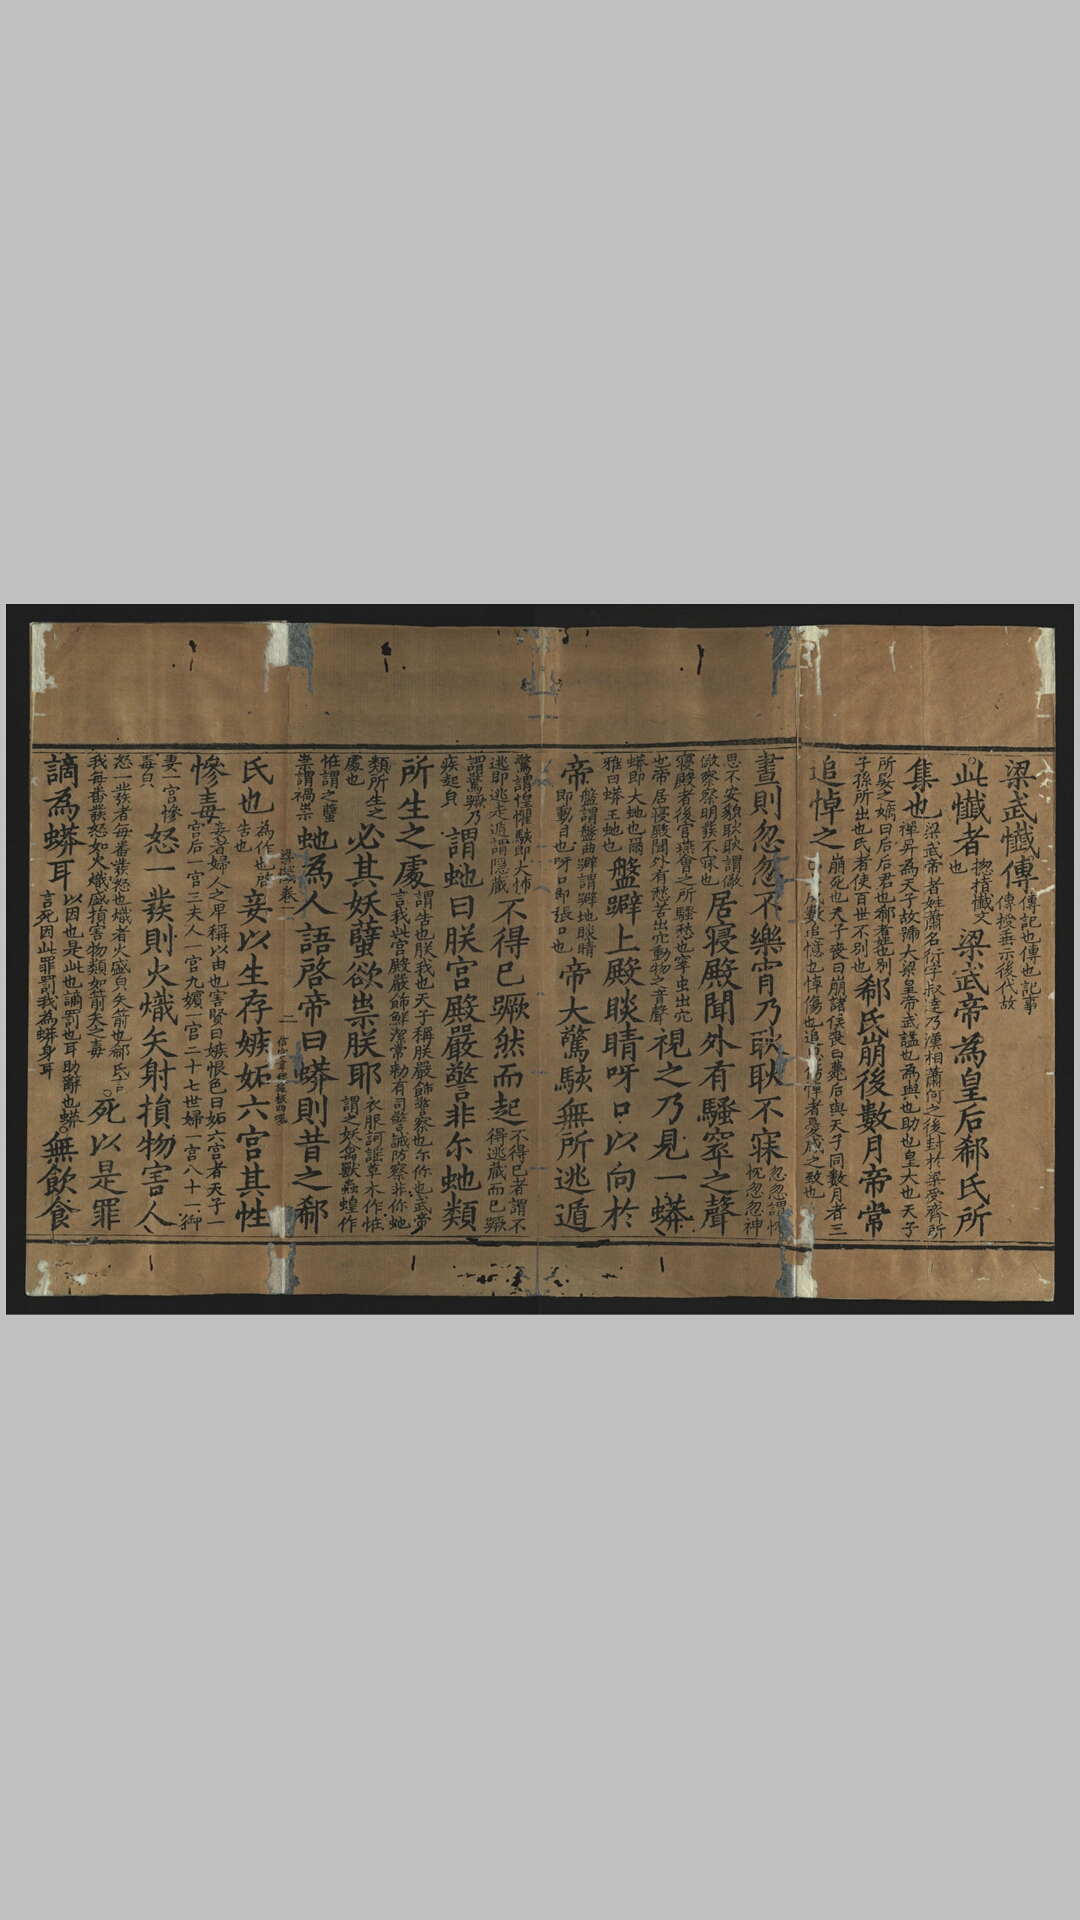 梁武懺傳 傳記也傳也記事傳授垂示後代故
此懺者 惣標懺文也 梁武帝為皇后郗氏所
集也 梁武帝者姓蕭名衍字叔達乃漢相蕭何之後封於梁受齊所禪昇為天子故號大梁皇帝武謚也為與也助也皇大也天子
所娶之嫡曰后后君也郗 子孫所出也氏者使百世不別也 郗氏崩後數月帝常
追悼之 崩死也天子喪曰崩諸侯喪曰薨后與天子同數月者三 數追憶也悼傷也追 悼者憂慼之致也
晝則忽忽不樂宵乃耿耿不寐 忽忽謂 忽忽神
思不安貌耿耿謂儆儆察察明發不寐也 居寢殿聞外有騷窣之聲
寢殿者後宮燕會之所騷愁也窣虫出穴也帝居寢殿聞外有愁苦出穴動物之音聲 視之乃見一蟒
蟒即大虵也爾雅曰蟒王虵也 盤躃上殿睒睛呀口以向於
帝 盤謂盤曲躃謂躃地睒睛即動目也呀口即張口也 帝大驚駭無所逃遁
驚謂惶懼駭即大怖逃即逃走遁謂隱藏 不得已蹶然而起 不得已者謂不得逃藏而已蹶
謂驚蹶乃疾起皃 謂虵曰朕宮殿嚴警非尔虵類
所生之處 謂告也朕我也天子稱朕嚴飾警察也尔你也武帝言我此宮殿嚴飾鮮潔常勑有司警誡防察非你虵
類所生之處也 必其妖孽欲祟朕耶 衣服訶謡草木作恠謂之妖禽獸蟲蝗作
恠謂之孽祟謂禍祟 虵為人語啓帝曰蟒則昔之郗
梁懺卷一 二
氏也 為作也啓告也 妾以生存嫉妬六宮其性
慘毒 妾者婦人之卑稱以由也害賢曰嫉恨色曰妬六宮者天子一宮后一宮三夫人一宮九嬪一宮二十七世婦一宮八十一御
妻一宮慘毒皃 怒一發則火熾矢射損物害人
怒一發者每番發怒也熾者火盛皃矢箭也郗氏言我每番發怒如火熾盛損害物類如箭矢之毒 死以是罪
謫為蟒耳 以因也是此也謫罰也耳助辭也蟒言死因此罪罰我為蟒身耳 無飲食